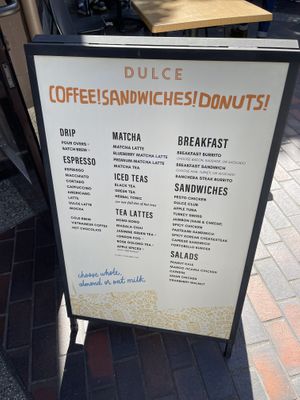 DULCE
COFFEE! SANDWICHES! DONUTS!
DRIP
POUR OVERS
BATCH BREW
ESPRESSO
ESPRESSO
MACCHIATO
CORTADO
CAPPUCCINO
AMERICANO
LATTE
DULCE LATTE
MOCHA
COLD BREW
VIETNAMESE COFFEE
HOT CHOCOLATE
MATCHA
MATCHA LATTE
BLUEBERRY MATCHA LATTE
PREMIUM MATCHA LATTE
MATCHA TEA
ICED TEAS
BLACK TEA
GREEN TEA
HERBAL TONIC
TEA LATTES
HONG KONG
MASALA CHAI
JASMINE GREEN TEA
LONDON FOG
ROSE OOLONG TEA
APPLE SPICED
BREAKFAST
BREAKFAST BURRITO
BREAKFAST SANDWICH
RANCHERA STEAK BURRITO
SANDWICHES
PESTO CHICKEN
DULCE CLUB
APPLE TUNA
TURKEY SWISS
SPICY CHICKEN
PASTRAMI SANDWICH
SPICY KOREAN CHEESESTEAK
CAPRESE SANDWICH
PORTOBELLO BURGER
SALADS
PEANUT KALE
MANGO JICAMA CHICKEN
CAPRESE
ASIAN CHICKEN
CRANBERRY WALNUT
choose whole,
almond or oat milk